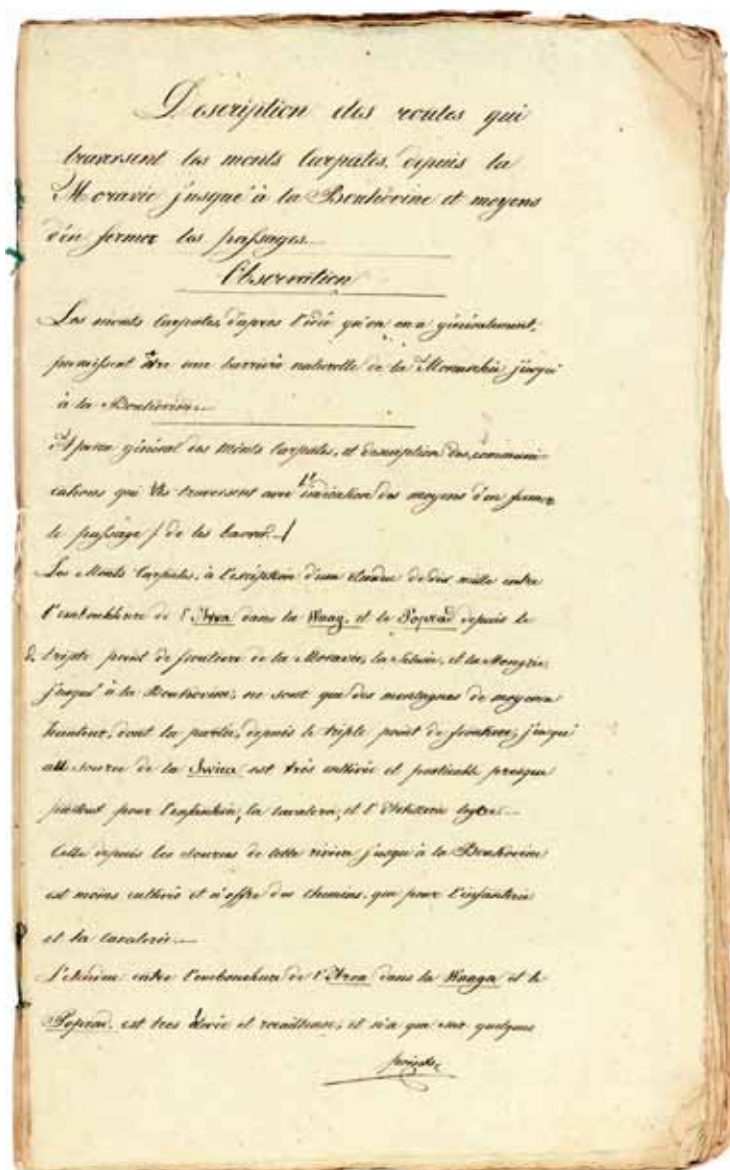 Description des routes qui
traversent les monts Carpates, depuis la
Moravie jusqu'à la Boukovine et moyens
d'en fermer les passages.
Observation
Les monts Carpates, d'apres l'idée qu'on en a généralement,
paraissent être une barrière naturelle de la Monarchie jusqu'
à la Boukovine.
Aperçu général des Monts Carpates, et description des communi-
cations qui les traversent avec l'indication des moyens d'en fermer
le passage / de les barrer. /
Les Monts Carpates, à l'exception d'une étendue de dix mille entre
l'embouchure de l'Arva dans la Waag, et le Poprad depuis le
triple point de frontiere de la Moravie, la Silesie, et la Hongrie,
jusqu'à la Boukovine, ne sont que des montagnes de moyenne
hauteur, dont la partie, depuis le triple point de frontiere, jusqu'
source de la Swica est très cultivée et praticable presque
partout pour l'infanterie, la cavalerie, et l'Artillerie legère.
Celle depuis les sources de cette riviere jusqu'à la Boukovine
est moins cultivée et n'offre des chemins, que pour l'infanterie
et la cavalerie.
L'etendue entre l'embouchure de l'Arva dans la Waaga et le
Poprad, est tres élevée et rocailleuse, et n'a que sur quelques
points